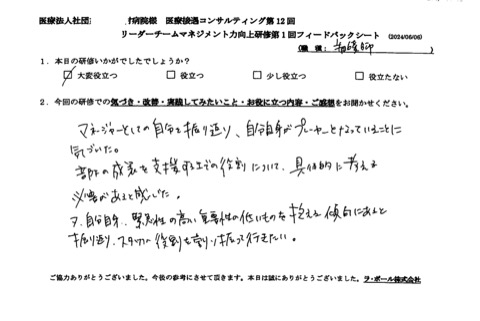 医療法人社団 病院様 医療接遇コンサルティング第12回
リーダーチームマネジメント力向上研修第1回フィードバックシート (2024/06/06)
(職種: 看護師)
1.本日の研修いかがでしたでしょうか?
☑大変役立つ □役立つ □少し役立つ □役立たない
2.今回の研修での気づき・改善・実践してみたいこと・お役に立つ内容・ご感想をお聞かせください。
マネージャーとしての自分を振り返り、自分自身がプレーヤーとなっていることに
気づいた。
部下の成果を支援する上での役割について、具体的に考える
必要があると感じた。
又、自分自身、緊急性の高い重要性の低いものを抱える傾向にあると
振り返り、スタッフへ役割を割り振って行きたい。
ご協力ありがとうございました。今後の参考にさせて頂きます。本日は誠にありがとうございました。ラ・ポール株式会社